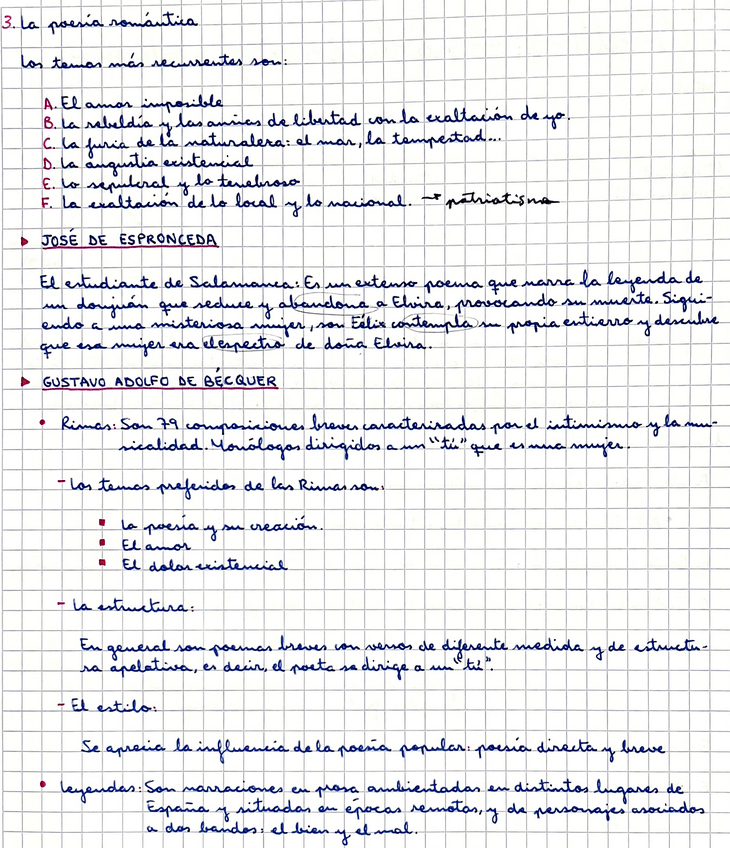 3. La poesía romántica
Los temas más recurrentes son:
A. El amor imposible
B. La rebeldía y las ansias de libertad con la exaltación de yo.
C. La furia de la naturaleza: el mar, la tempestad...
D. La angustia existencial
E. Lo sepulcral y lo tenebroso
F. La exaltación de lo local y lo nacional. → patriotismo
▶ JOSÉ DE ESPRONCEDA
El estudiante de Salamanca: Es un extenso poema que narra la leyenda de
un donjuán que seduce y abandona a Elvira, provocando su muerte. Sigui-
endo a una misteriosa mujer, son Félix contempla su propia entierro y descubre
que esa mujer era el espectro de doña Elvira.
▶ GUSTAVO ADOLFO DE BÉCQUER
• Rimas: Son 79 composiciones breves caracterizadas por el intimismo y la mu-
sicalidad. Monólogos dirigidos a un "tú" que es una mujer.
- Los temas preferidos de las Rimas son:
▪ La poesía y su creación.
▪ El amor
▪ El dolor existencial
- La estructura:
En general son poemas breves con versos de diferente medida y de estructu-
ra apelativa, es decir, el poeta se dirige a un "tú".
- El estilo:
Se aprecia la influencia de la poesía popular: poesía directa y breve
• Leyendas: Son narraciones en prosa ambientadas en distintos lugares de
España y situadas en épocas remotas, y de personajes asociados
a dos bandos: el bien y el mal.